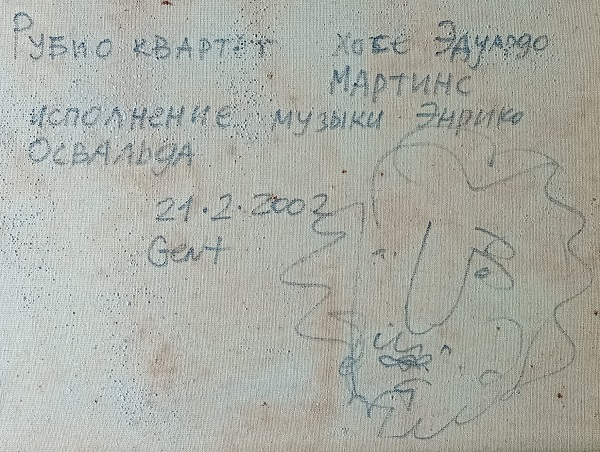 Рубио квартет Хосе Эдуардо
Мартинс
исполнение музыки Энрико
Освальда
21.2.2002
Gent